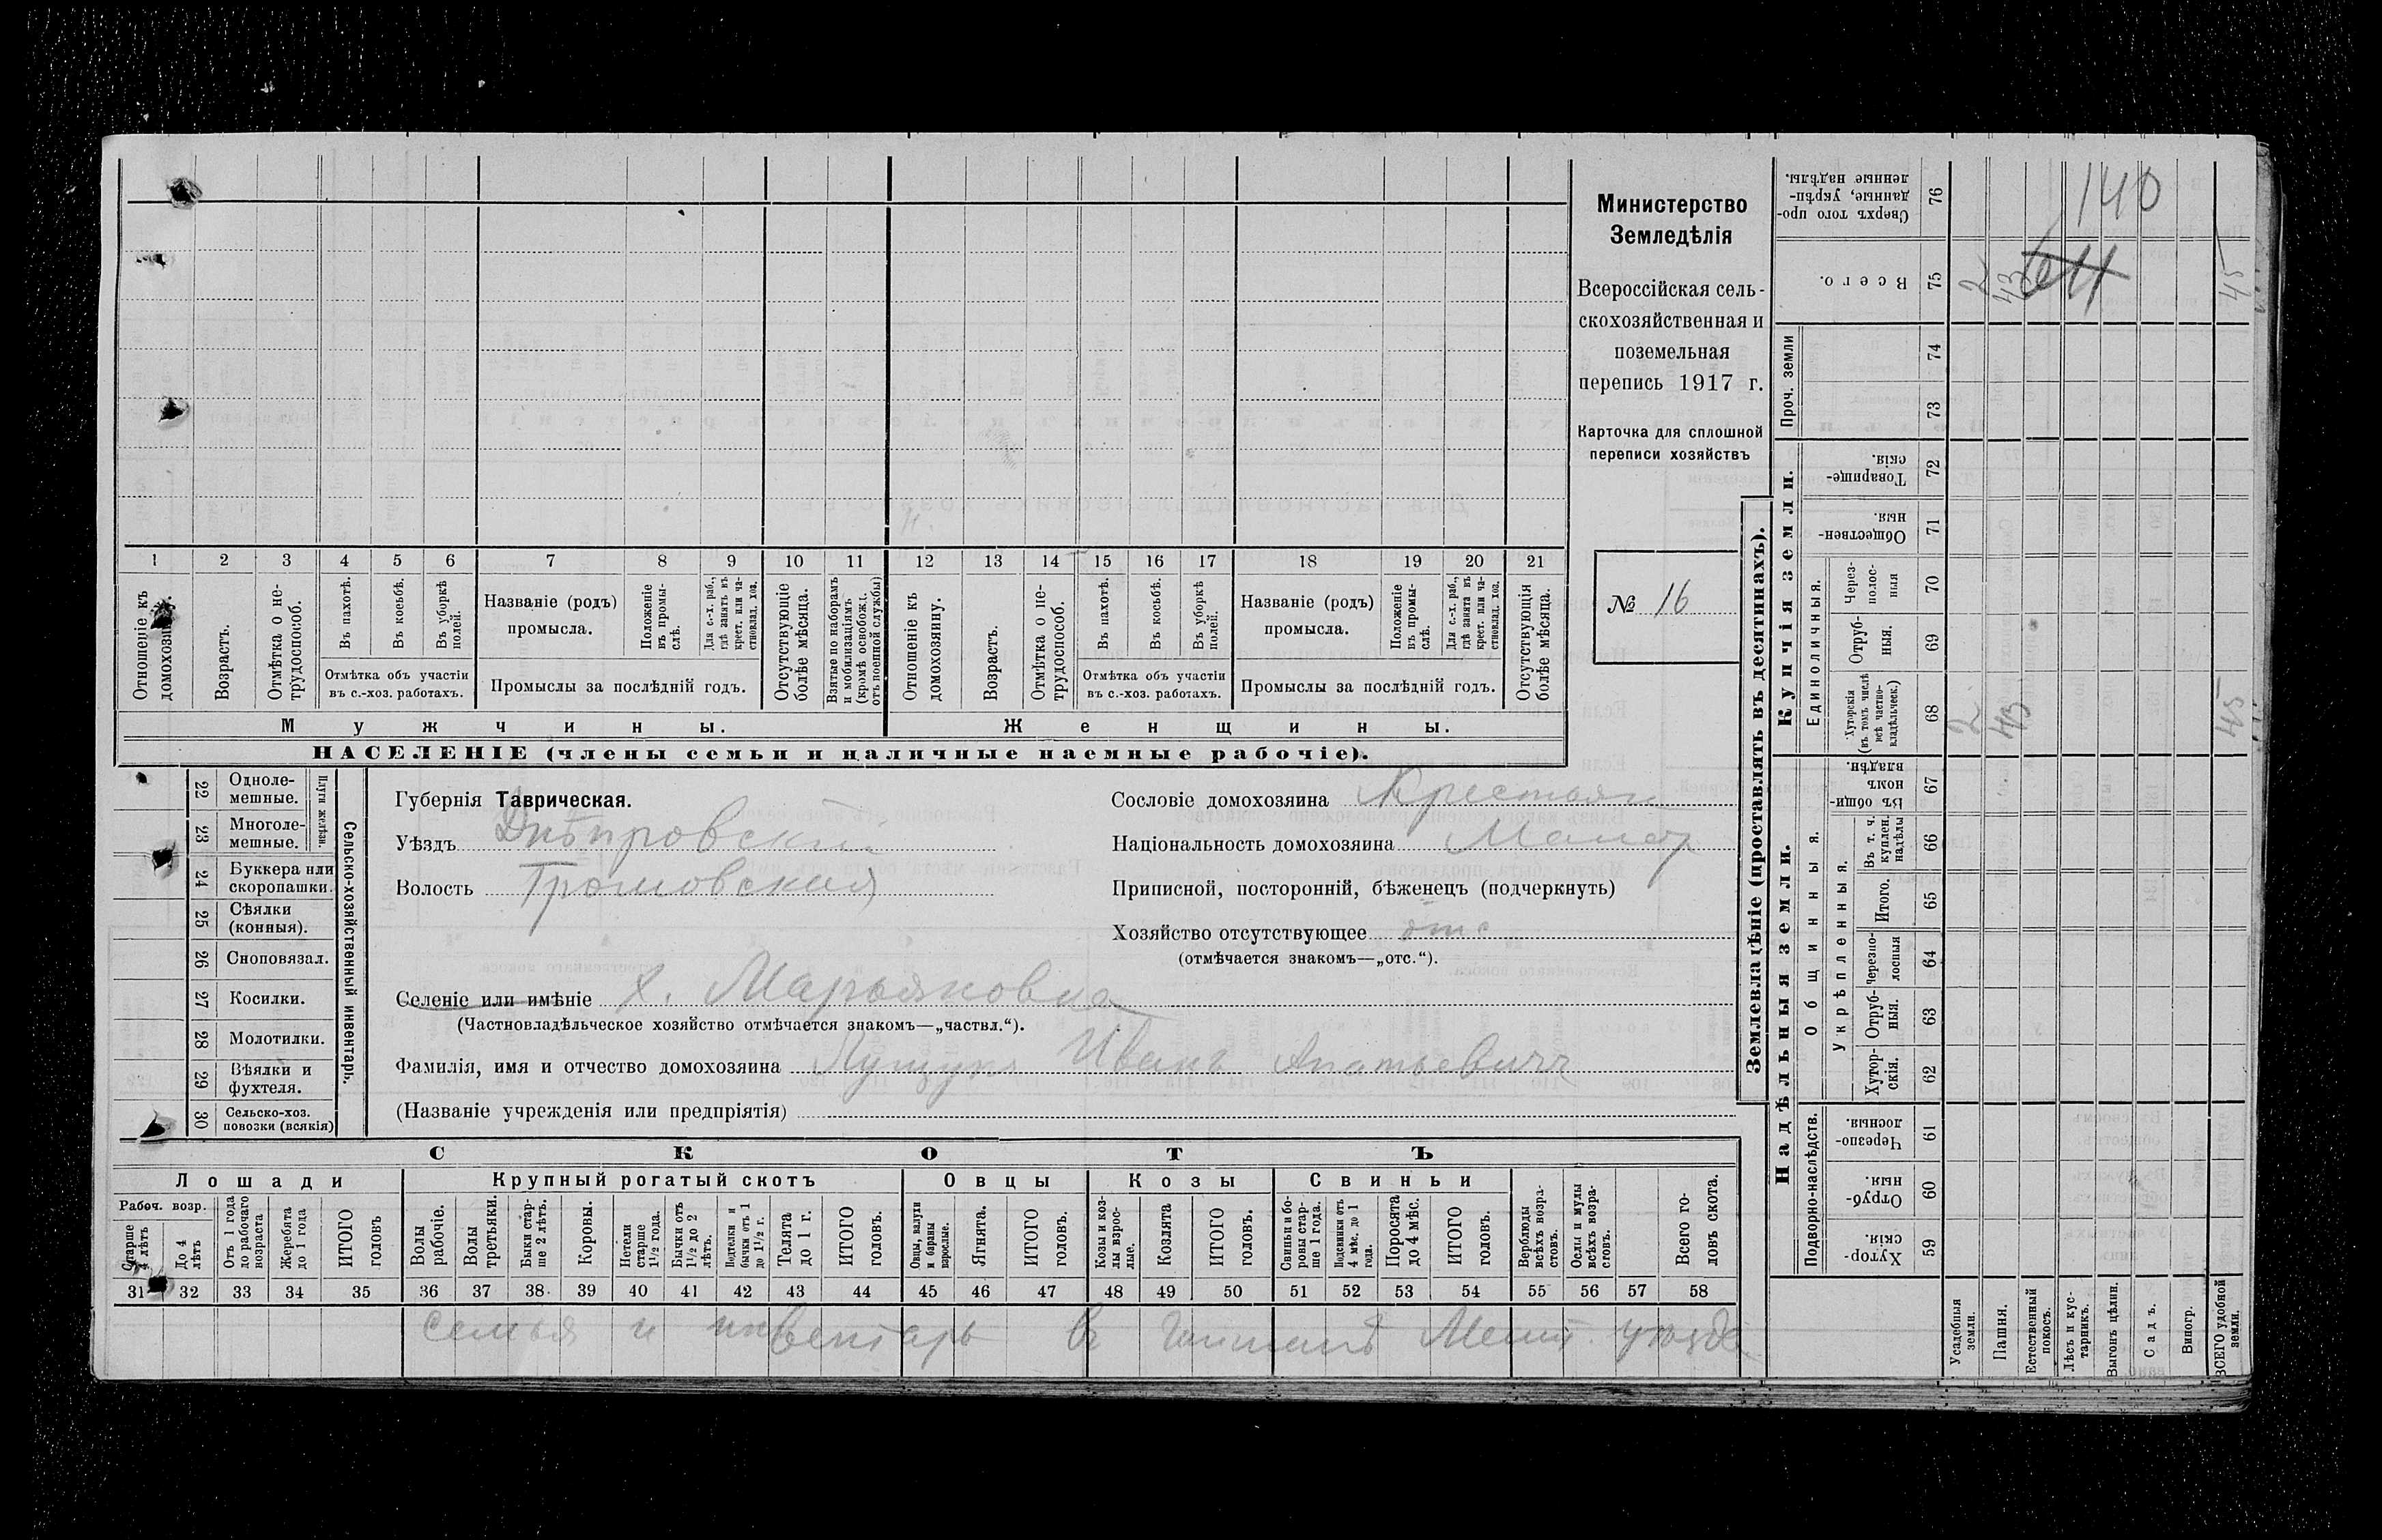 1 2 3 4 5 6 7 8 9 10 11 12 13 14 15 16 17 18 19 20 21
Отношеніе къ домохозяину.
Возрастъ.
Отмѣтка о не-
трудоспособ.
Въ пахотѣ.
Въ косьбѣ.
Въ уборкѣ
полей.
Отмѣтка объ участіи
въ с.-хоз. работахъ.
Названіе (родъ)
промысла.
Положеніе
въ промы-
слѣ.
Для с.-х. раб.,
гдѣ занятъ въ
крест. или ча-
стновлад. хоз.
Промыслы за послѣдній годъ.
Отсутствующіе
болѣе мѣсяца.
Взятые по наборамъ
и мобилизаціямъ
(кромѣ освобожд.
отъ военной службы)
Отношеніе къ
домохозяину.
Возрастъ.
Отмѣтка о не-
трудоспособ.
Въ пахотѣ.
Въ косьбѣ.
Въ уборкѣ
полей.
Отмѣтка объ участіи
въ с.-хоз. работахъ.
Названіе (родъ)
промысла.
Положеніе
въ промы-
слѣ.
Для с.-х. раб.,
гдѣ занята въ
крест. или ча-
стновлад. хоз.
Промыслы за послѣдній годъ.
Отсутствующія
болѣе мѣсяца.
Мужчины.
Женщины.
НАСЕЛЕНІЕ (члены семьи и наличные наемные рабочіе).
Министерство
Земледѣлія
Всероссійская сель-
скохозяйственная и
поземельная
перепись 1917 г.
Карточка для сплошной
переписи хозяйствъ
№ 16
22 Одноле-
мешные.
23 Многоле-
мешные.
Плуги желѣзн.
24 Буккера или
скоропашки.
25 Сѣялки
(конныя).
26 Сноповязал.
27 Косилки.
28 Молотилки.
29 Вѣялки и
фухтеля.
30 Сельско-хоз.
повозки (всякія)
Сельско-хозяйственный инвентарь.
Губернія Таврическая.
Уѣздъ Днѣпровскій
Волость Громовская
Сословіе домохозяина Крестьян
Національность домохозяина Малор
Приписной, посторонній, бѣженецъ (подчеркнуть)
Хозяйство отсутствующее отс
(отмѣчается знакомъ—„отс.“).
Селеніе или имѣніе х. Марьяновка
(Частновладѣльческое хозяйство отмѣчается знакомъ—„частвл.“).
Фамилія, имя и отчество домохозяина Лущукъ Иванъ Ипатьевичъ
(Названіе учрежденія или предпріятія)
СКОТЪ
Лошади
Крупный рогатый скотъ
Овцы
Козы
Свиньи
Рабоч. возр.
Старше
4 лѣтъ
До 4
лѣтъ
Отъ 1 года
до рабочаго
возраста
Жеребята
до 1 года
ИТОГО
головъ
Волы
рабочіе.
Волы
третьяки.
Быки стар-
ше 2 лѣтъ.
Коровы.
Нетели
старше
1½ года.
Бычки отъ
1½ до 2
лѣтъ.
Подтелки и
бычки отъ 1
до 1½ г.
Телята
до 1 г.
ИТОГО
головъ.
Овцы, валухи
и бараны
взрослые.
Ягнята.
ИТОГО
головъ.
Козы и коз-
лы взрос-
лые.
Козлята
ИТОГО
головъ.
Свиньи и бо-
ровы стар-
ше 1 года.
Подсвинки отъ
4 мѣс. до 1
года.
Поросята
до 4 мѣс.
ИТОГО
головъ.
Верблюды
всѣхъ возра-
стовъ.
Ослы и мулы
всѣхъ возра-
стовъ.
Всего го-
ловъ скота.
31 32 33 34 35 36 37 38 39 40 41 42 43 44 45 46 47 48 49 50 51 52 53 54 55 56 57 58
семья и инвентарь в Мелит. уѣзде
Землевладѣніе (проставлять въ десятинахъ).
Купчія земли.
Надѣльныя земли.
Сверхъ того про-
данные, укрѣп-
ленные надѣлы.
76
140
Всего.
75
2
43
45
Проч. земли
74
73
Товарище-
скія.
72
Обществен-
ныя.
71
Единоличныя.
Через-
полос-
ныя
70
Отруб-
ныя.
69
Хуторскія
(въ томъ числѣ
всѣ частно-
владѣльческ.)
68
2
43
45
Общинныя.
Въ общин-
номъ
владѣн.
67
Укрѣпленныя.
Въ т. ч.
куплен.
надѣлы
66
Итого.
65
Черезпо-
лосныя
64
Отруб-
ныя.
63
Хутор-
скія.
62
Подворно-наслѣдств.
Черезпо-
лосныя.
61
Отруб-
ныя.
60
Хутор-
скія.
59
Усадебныя
земли.
Пашня.
Естественный
покосъ.
Лѣсъ и кус-
тарникъ.
Выгонъ цѣлин.
Садъ.
Виногр.
ВСЕГО удобной
земли.